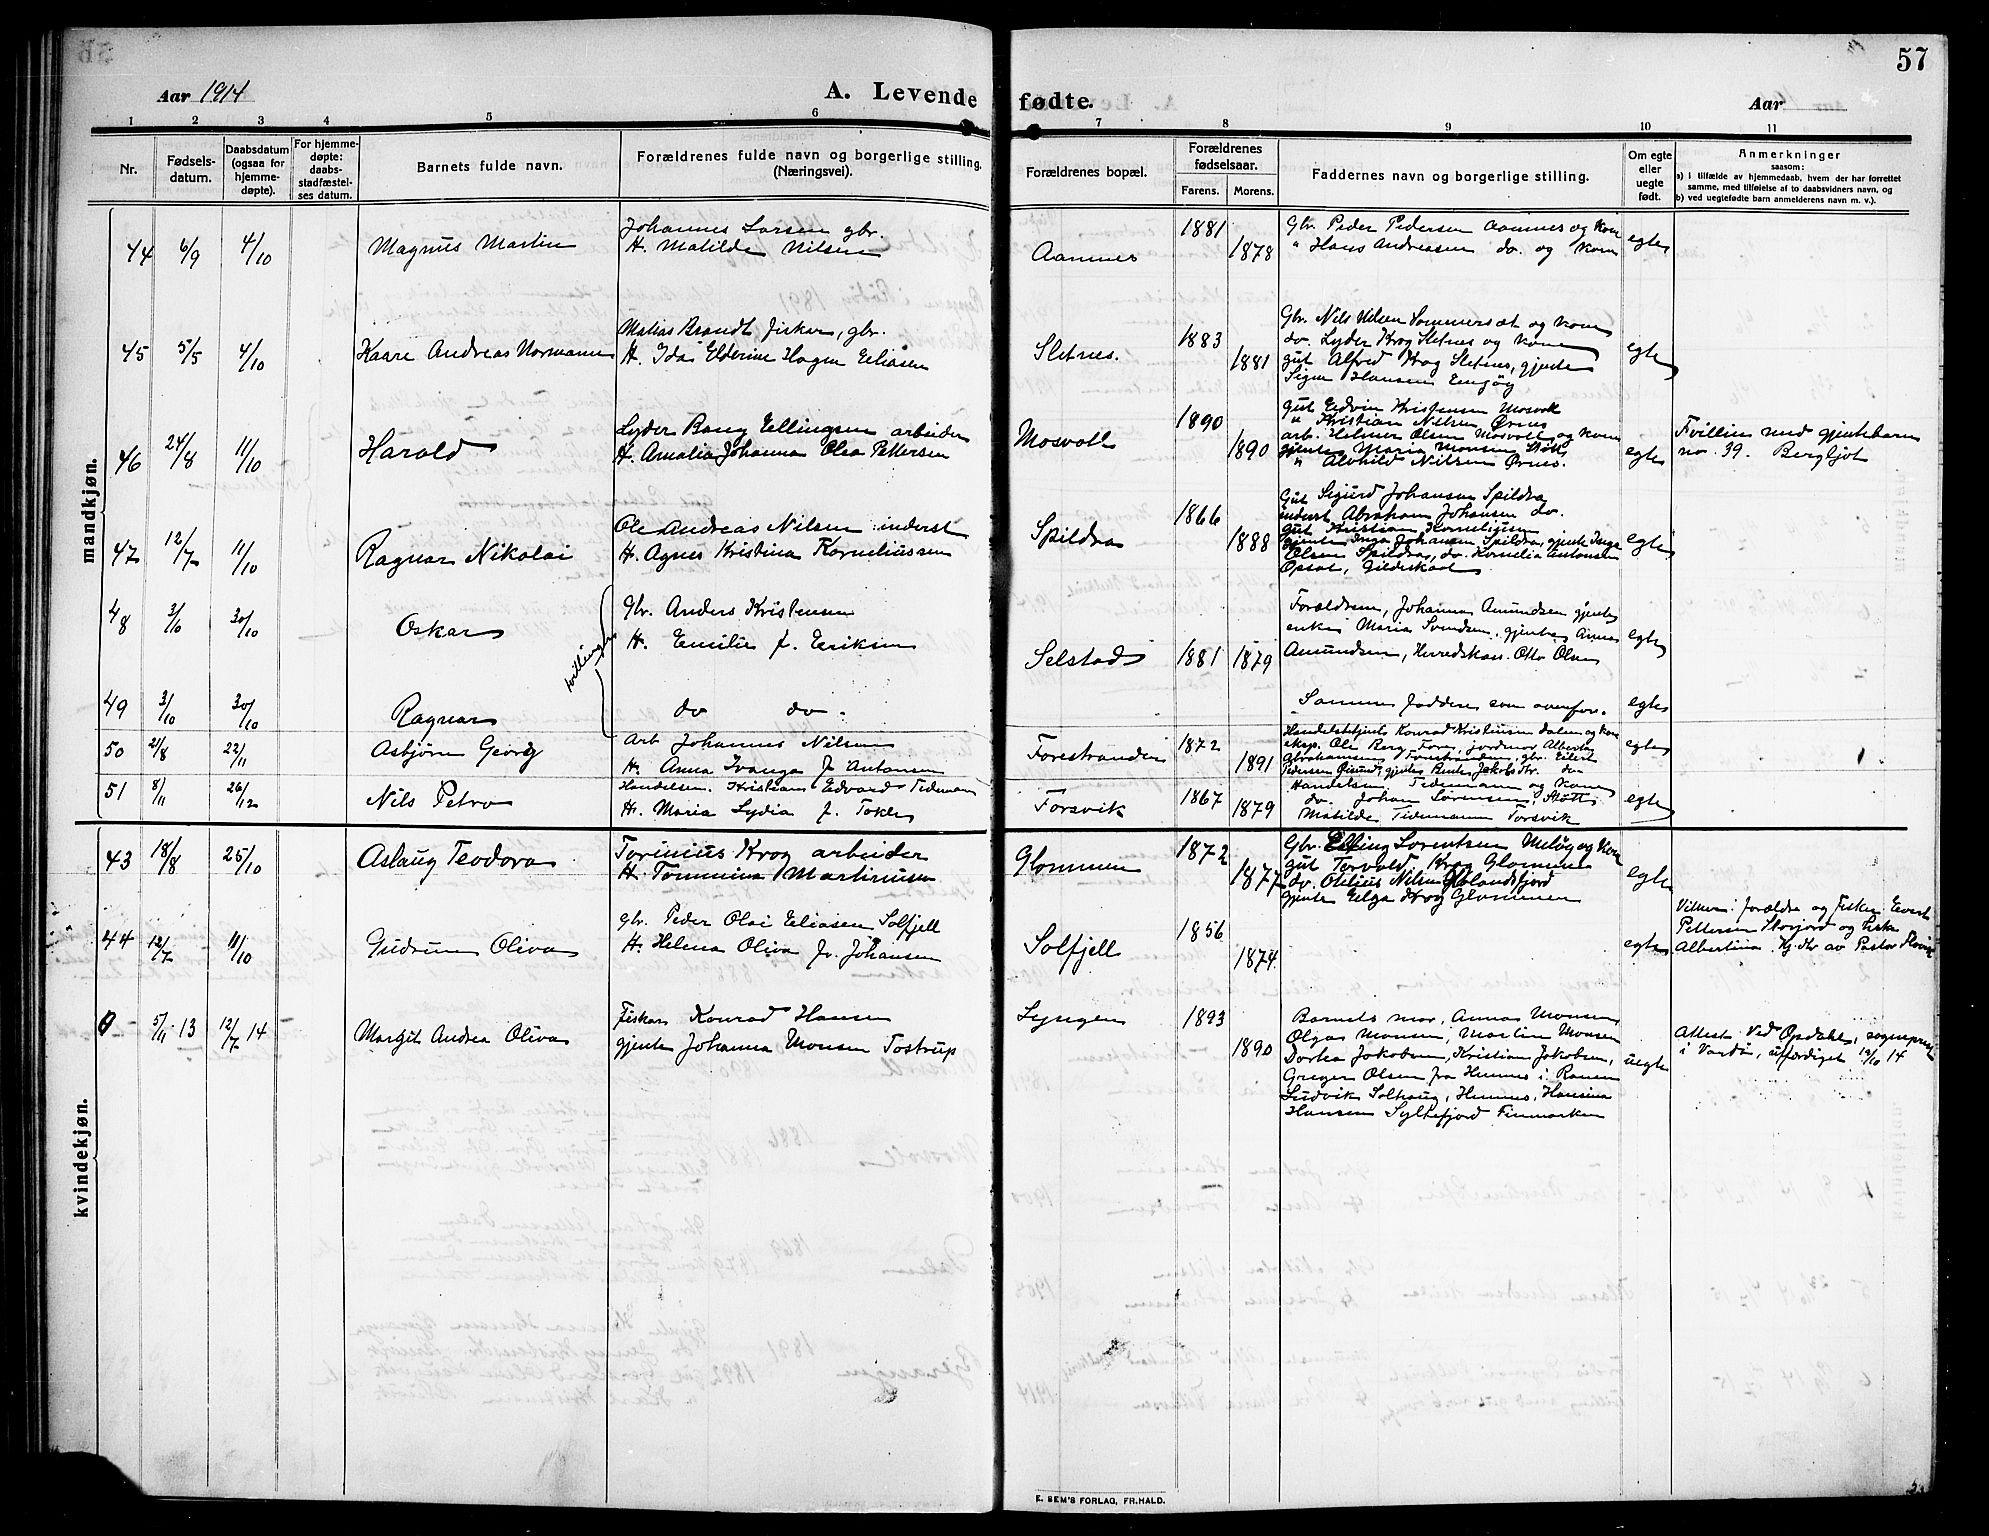 57
Aar 1914
A. Levende fødte.
Aar
1 2 3 4 5 6 7 8 9 10 11
Nr.
Fødsels-
datum.
Daabsdatum
(ogsaa for
hjemme-
døpte).
For hjemme-
døpte:
daabs-
stadfæstel-
ses datum.
Barnets fulde navn.
Forældrenes fulde navn og borgerlige stilling.
(Næringsvei).
Forældrenes bopæl.
Forældrenes
fødselsaar.
Farens. Morens.
Faddernes navn og borgerlige stilling.
Om egte
eller
uegte
født.
Anmerkninger
saasom:
a) i tilfælde av hjemmedaab, hvem der har forrettet
samme, med tilføielse af to daabsvidners navn, og
b) ved uegtefødte barn anmelderens navn m. v.).
mandkjøn.
44 6/9 4/10 Magnus Martin
Johannes Larsen gbr.
H. Matilde Nilsen
Aamnes 1881 1878
Gbr. Peder Pedersen Aamnes og kone
" Hans Andreasen do. og kone
egte
45 5/5 4/10 Kaare Andreas Normann
Matias Brandt fisker, gbr.
H. Ida Elderine Hagen Eliasen
Sletnes. 1883 1881
Gbr. Nils Nilsen Sommersæt og kone
do. Lyder Krog Sletnes og kone
gut Alfred Krog Sletnes, gjente
Signe Hansen Engøy
egte
46 24/8 11/10 Harald
Lyder Bang Ellingsen arbeider
H. Amalia Johanna Olea Pettersen
Mosvoll 1890 1890
Gut Edvin Kristensen Mosvoll
" Kristian Nilsen Ørnes
arb. Helmer Olsen Mosvoll og kone
gjente Maria Monsen Støtt
" Alvhild Nilsen Ørnes.
egte
Tvilling med gjentebarn
no. 39. Bergljot
47 12/7 11/10 Ragnar Nikolai
Ole Andreas Nilsen inderst
H. Agnes Kristina Korneliussen
Spildra 1866 1888
Gut Sigurd Johansen Spildra
inderst Abraham Johansen do.
gut Kristian Korneliussen
gjente Inga Johansen Spildra, gjente Inga
Olsen Spildra, do. Kornelia Antonsen
Opsal, Gildeskaal
egte
48 3/10 30/10 Oskar
tvillinger
Gbr. Anders Kristensen
H. Emilie f. Eriksen
Selstad 1881 1879
Forældrene, Johanna Amundsen gjente
enke Maria Svendsen, gjente Anna
Amundsen, Herredskass. Otto Olsen
egte
49 3/10 30/10 Ragnar
do do.
Samme faddere som ovenfor.
egte
50 21/8 22/11 Asbjørn Georg
Arb Johannes Nilsen
H. Anna Ivanga f Antonsen
Forestranden 1872 1891
Handelsbetjent Konrad Kristensen Dalen og kone
eksp. Ole Berg Fore, jordmor Alberta
Abrahamsen Forestranden, gbr. Eilert
Pedersen, gjente Berte Jakobsdtr. do
egte
51 8/11 26/12 Nils Petro
Handelsm. Kristian Edvard Tidemann
H. Maria Lydia f. Tokle
Forsvik 1867 1879
Handelsm. Tidemann og kone
do. Johan Sørensen, Støtt
Matilde Tidemann Forsvik
egte
kvindekjøn.
43 18/8 25/10 Aslaug Teodora
Torinius Krog arbeider
H. Tommina Martinusen
Glommen 1872 1877
Gbr. Elling Lorentsen Meløy og kone
gut Torvald Krog Glommen
do. Oteljus Nilsen Glomfjord
gjente Helga Krog Glommen
egte
44 12/7 11/10 Gudrun Oliva
gbr. Peder Olai Eliasen Solfjell
H. Helena Oliva f. Johansen
Solfjell 1856 1874
egte
Vidner: forældre og Fisker Evert
Pettersen Storjord og Piske
Albertina. Kj. dr av Pastor
0 5/11 13 12/7 14 Margit Andrea Oliva
Fisker Konrad Hansen
gjente Johanna Monsen Tostrup
Lyngen 1893 1890
Barnets mor, Anna Monsen
Olga Monsen, Martin Monsen
Dorthea Jakobsen, Kristian Jakobsen,
Greger Olsen fra Hemnes i Ranen
Ludvik Solhaug, Hemnes, Hansina
Hansen Syltefjord Finmarken
uegte
Attest Ved Opdahl, sogneprest
i Vardø, utfærdiget 19/10 14
E. SEM'S FORLAG, FR.HALD.